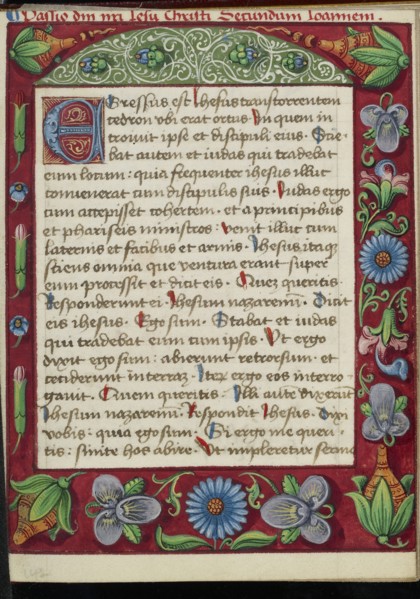 Passio dni nri Iesu Christi Secundum Ioannem.
Egressus est ihesus trans torrentem
cedron ubi erat ortus In quem in
troiuit ipse et discipuli eius. Scie
bat autem et iudas qui tradebat
eum locum: quia frequenter ihesus illuc
conuenerat cum discipulis suis. Iudas ergo
cum accepisset cohortem. et a principibus
et phariseis ministros. uenit illuc cum
laternis et facibus et armis. Ihesus itaq
sciens omnia que ventura erant super
eum processit et dicit eis. Quez queritis.
Responderunt ei. Ihesum nazarenū. Dicit
eis ihesus. Ego sum. Stabat et iudas
qui tradebat eum cum ipsis. Ut ergo
dixit ego sum: abierunt retrorsum. et
ceciderunt in terraz. Iterz ergo eos interro
gauit. Quem queritis. Illi autē dixerūt
Ihesum nazarenū. Respondit Ihesus. Dixi
vobis: quia ego sum. Si ergo me queri
tis: sinite hos abire. Ut impleretur sermo